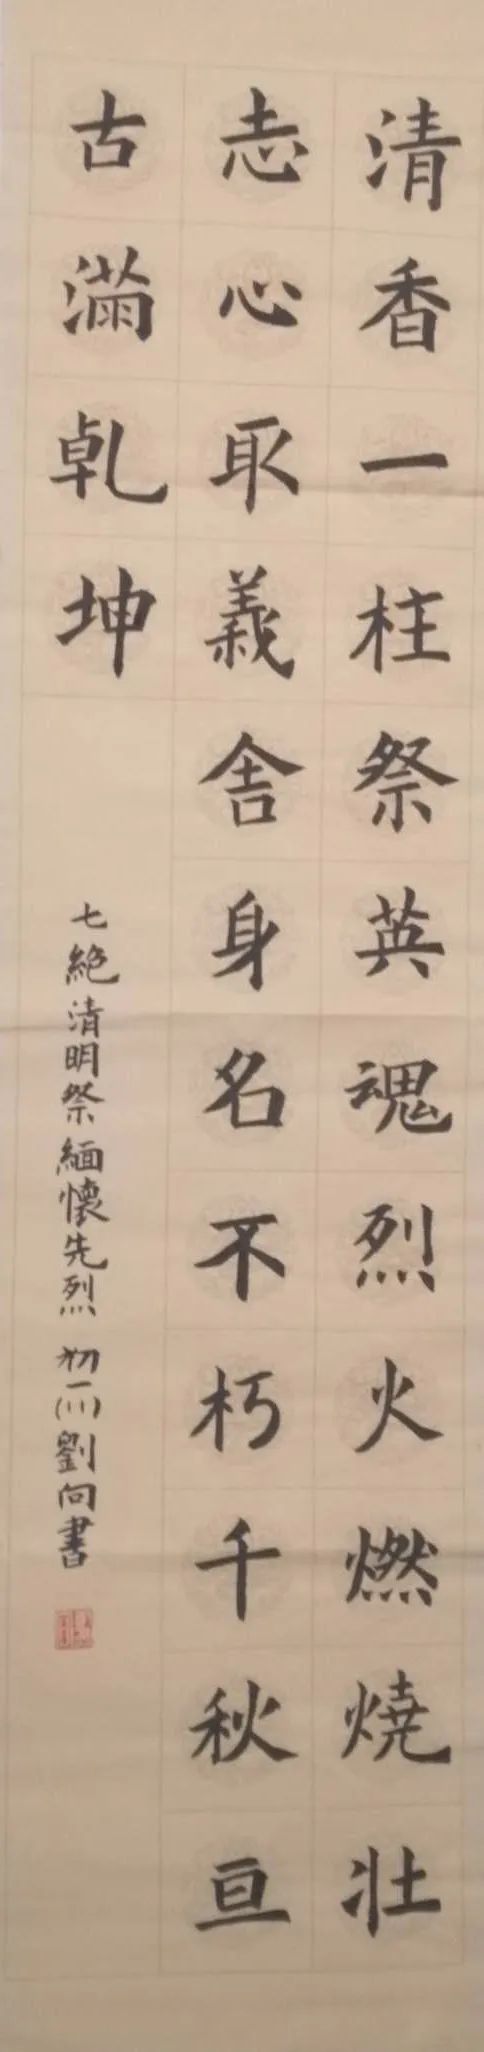 清香一柱祭英魂烈火燃燒壯
志心取義舍身名不朽千秋亘
古滿乾坤
七絶清明祭緬懷先烈 初一(三)劉向書